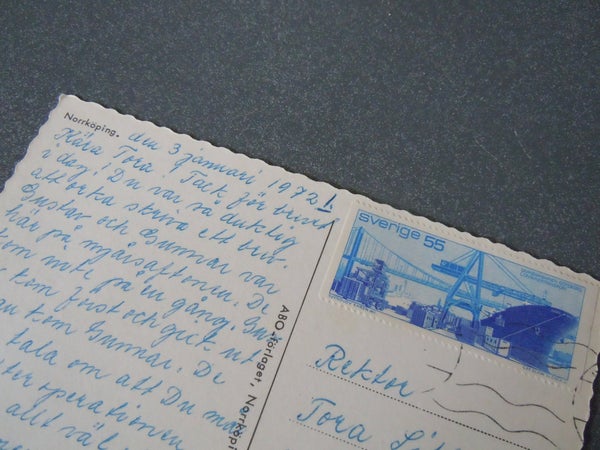 Norrköping.
den 3 januari 1972 1.
Kära Tora! Tack för brevet
i dag! Du var så duktig
att orka skriva ett brev.
Gustav och Gunnar var
här på nyårsaftonen. De
kom inte på en gång.
kom först och gick ut
kom Gunnar. De
tala om att Du
operationen
allt väl
ABO-förlaget, Norrköpi
sverige 55
Rektor
Tora